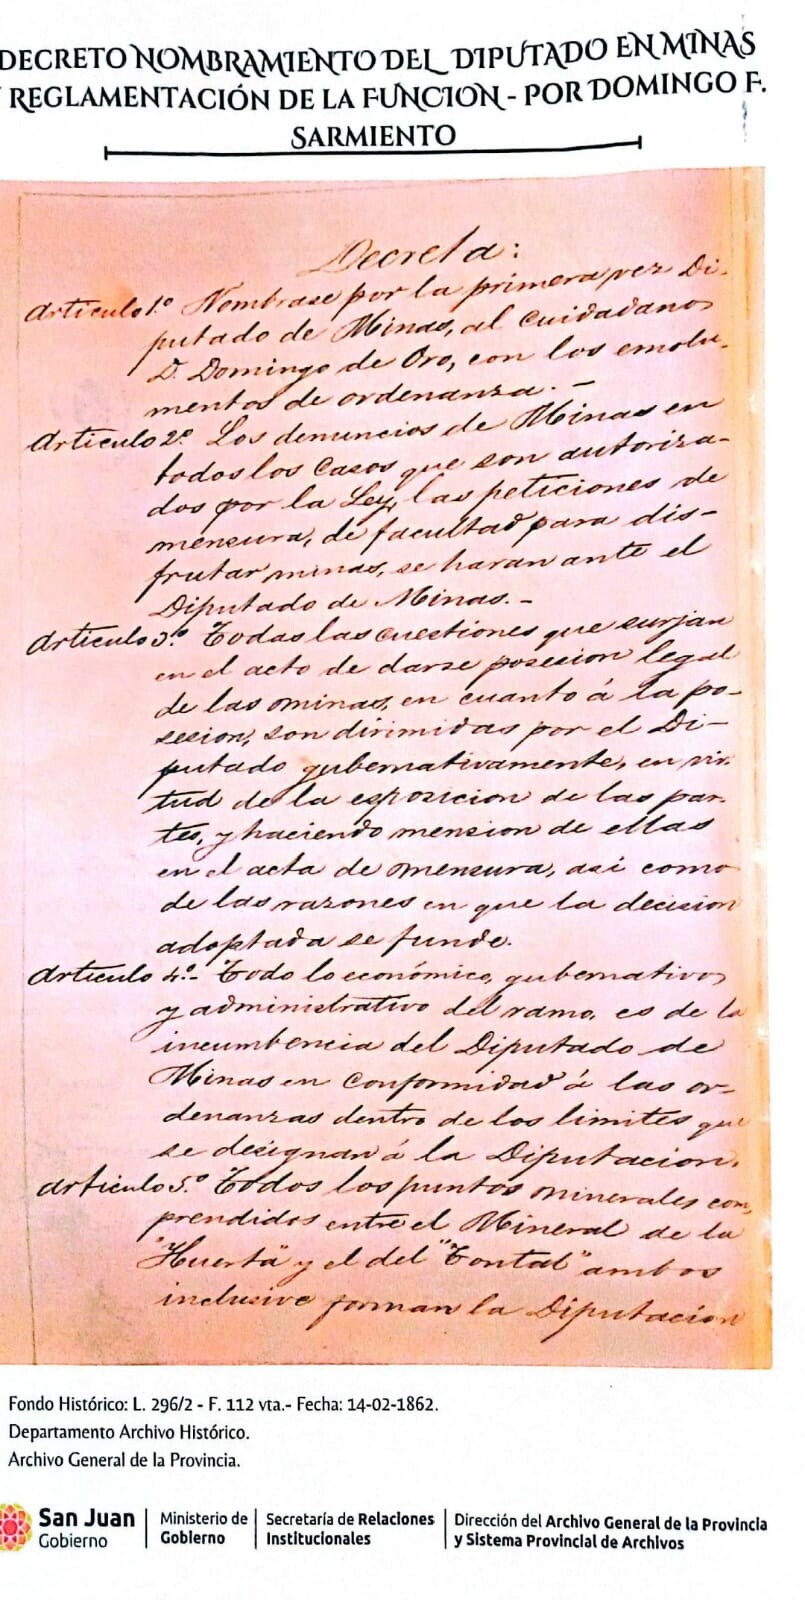 DECRETO NOMBRAMIENTO DEL DIPUTADO EN MINAS
Y REGLAMENTACIÓN DE LA FUNCION - POR DOMINGO F.
SARMIENTO
Decreta:
Articulo 1.º Nombrase por la primera vez Di-
putado de Minas, al cuidadano
D. Domingo de Oro, con los emolu-
mentos de ordenanza. -
Articulo 2.º Los denuncios de Minas en
todos los casos que son autoriza-
dos por la Ley, las peticiones de
mensura, de facultad para dis-
frutar minas, se haran ante el
Diputado de Minas. -
Articulo 3.º Todas las cuestiones que surjan
en el acto de darse posesion legal
de las minas, en cuanto á la po-
sesion, son dirimidas por el Di-
putado gubernativamente, en vir-
tud de la esposicion de las par-
tes, y haciendo mension de ellas
en el acta de mensura, asi como
de las razones en que la decision
adoptada se funde.
Articulo 4.º- Todo lo económico, gubernativo
y administrativo del ramo, es de la
incumbencia del Diputado de
Minas en conformidad á las or-
denanzas dentro de los limites que
se designan á la Diputacion.
Articulo 5.º Todos los puntos minerales com-
prendidos entre el Mineral de la
"Huerta" y el del "Tontal" ambos
inclusive forman la Diputacion
Fondo Histórico: L. 296/2 - F. 112 vta.- Fecha: 14-02-1862.
Departamento Archivo Histórico.
Archivo General de la Provincia.
San Juan
Gobierno
Ministerio de
Gobierno
Secretaría de Relaciones
Institucionales
Dirección del Archivo General de la Provincia
y Sistema Provincial de Archivos